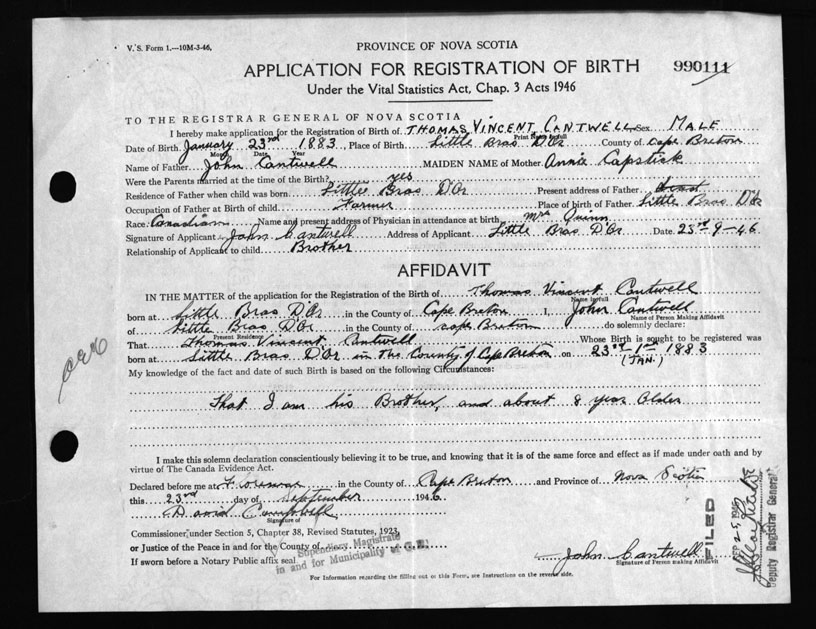 V.S. Form 1.—10M-3-46,
PROVINCE OF NOVA SCOTIA
APPLICATION FOR REGISTRATION OF BIRTH 990111
Under the Vital Statistics Act, Chap. 3 Acts 1946
TO THE REGISTRAR GENERAL OF NOVA SCOTIA
I hereby make application for the Registration of Birth of THOMAS VINCENT CANTWELL Sex MALE
Print Name in full
Date of Birth January 23rd 1883, Place of Birth Little Bras D'Or County of Cape Breton
Month Date Year
Name of Father John Cantwell MAIDEN NAME of Mother Annie Capstick
Were the Parents married at the time of the Birth? yes
Residence of Father when child was born Little Bras D'Or Present address of Father
Occupation of Father at Birth of child Farmer Place of birth of Father Little Bras D'Or
Race: Canadian Name and present address of Physician in attendance at birth Mrs Quinn
Signature of Applicant John Cantwell Address of Applicant Little Bras D'Or Date 23rd 9-46
Relationship of Applicant to child Brother
AFFIDAVIT
IN THE MATTER of the application for the Registration of the Birth of Thomas Vincent Cantwell
Name in full
born at Little Bras D'Or in the County of Cape Breton I, John Cantwell
Name of Person Making Affidavit
of Little Bras D'Or in the County of Cape Breton do solemnly declare:
Present Residence
That Thomas Vincent Cantwell Whose Birth is sought to be registered was
born at Little Bras D'Or in the County of Cape Breton on 23rd 1st 1883
(JAN.)
My knowledge of the fact and date of such Birth is based on the following Circumstances:
That I am his Brother, and about 8 year Older
I make this solemn declaration conscientiously believing it to be true, and knowing that it is of the same force and effect as if made under oath and by
virtue of The Canada Evidence Act.
Declared before me at Florence in the County of Cape Breton and Province of Nova Scotia
this 23rd day of September 1946
David Campbell
Signature of
Commissioner, under Section 5, Chapter 38, Revised Statutes, 1923,
or Justice of the Peace in and for the County of
Stipendiary Magistrate
in and for Municipality of C.B.
If sworn before a Notary Public affix seal
John Cantwell
Signature of Person making Affidavit
For Information regarding the filling out of this Form, see Instructions on the reverse side.
FILED
SEP 25 1946
Deputy Registrar General